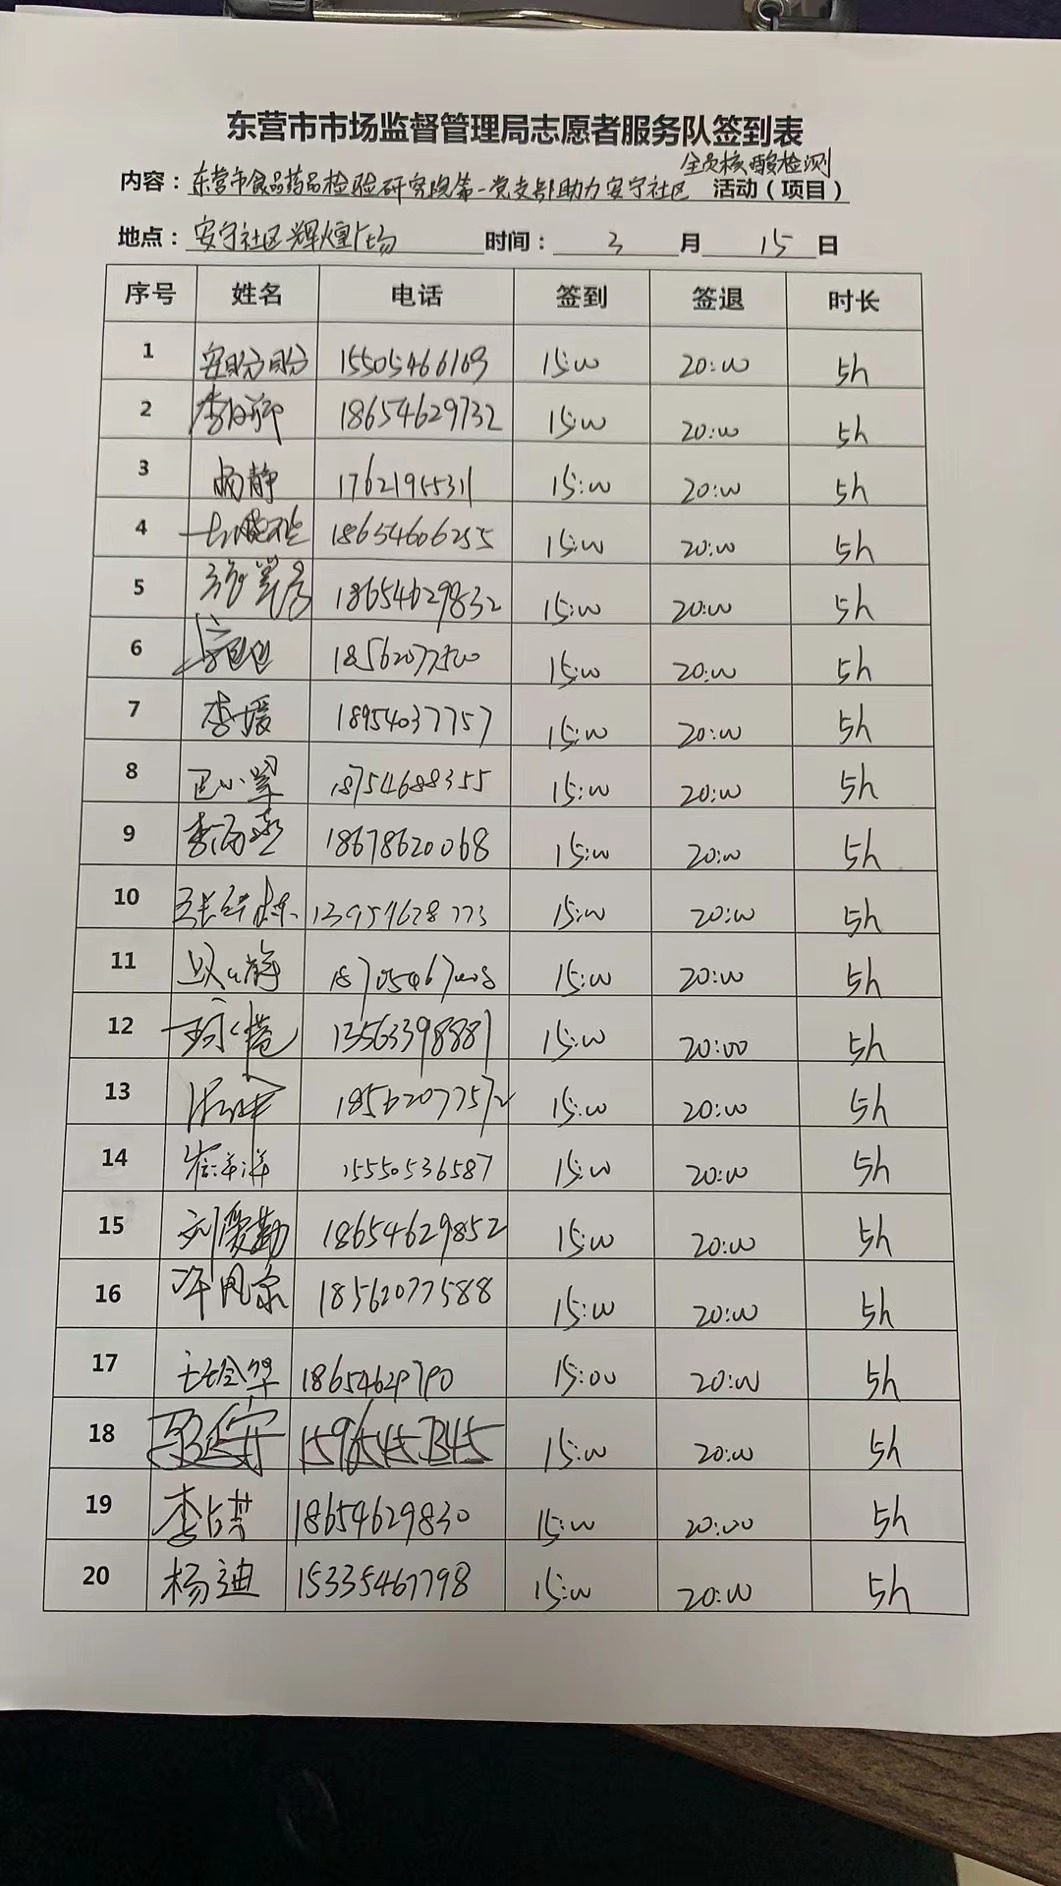 东营市市场监督管理局志愿者服务队签到表
全员核酸检测
内容：东营市食品药品检验研究院第一党支部助力安宁社区 活动（项目）
地点：安宁社区辉煌广场 时间：3月15日
序号 姓名 电话 签到 签退 时长
1 安盼盼 15505466169 15:00 20:00 5h
2 18654629732 15:00 20:00 5h
3 杨静 17621955311 15:00 20:00 5h
4 18654606255 15:00 20:00 5h
5 18654629832 15:00 20:00 5h
6 18562077500 15:00 20:00 5h
7 李媛 18954037757 15:00 20:00 5h
8 18754688355 15:00 20:00 5h
9 18678620068 15:00 20:00 5h
10 15:00 20:00 5h
11 15:00 20:00 5h
12 13563398881 15:00 20:00 5h
13 18562077572 15:00 20:00 5h
14 崔洋洋 15550536587 15:00 20:00 5h
15 刘爱勤 18654629852 15:00 20:00 5h
16 18562077588 15:00 20:00 5h
17 18654629790 15:00 20:00 5h
18 15:00 20:00 5h
19 18654629830 15:00 20:00 5h
20 杨迪 15335467798 15:00 20:00 5h